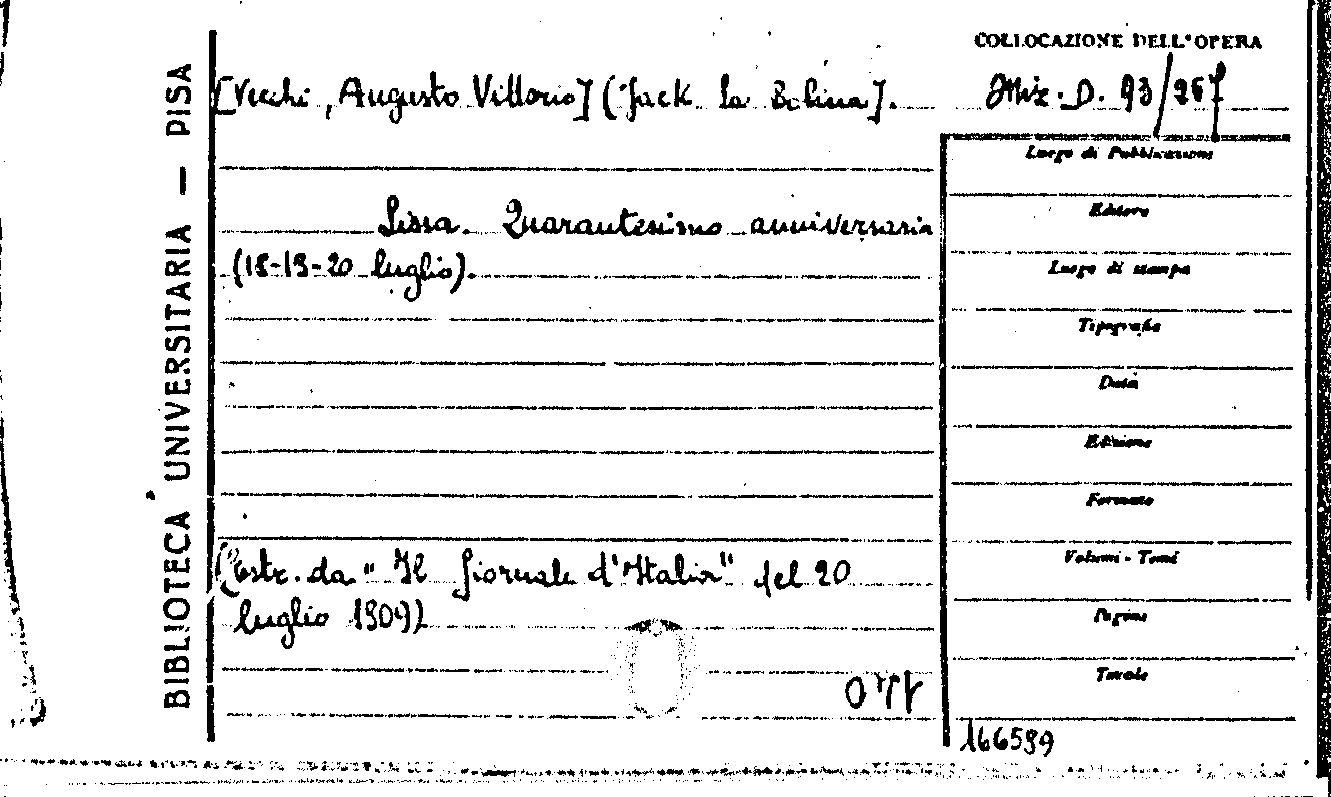 COLLOCAZIONE DELL'OPERA
[Vecchi, Augusto Vittorio] (Jack La Bolina].
Mix. D. 93/267
BIBLIOTECA UNIVERSITARIA — PISA
Luogo di Pubblicazione
Lissa. Quarantesimo anniversario
Editore
(18-19-20 luglio).
Luogo di stampa
Tipografia
Data
Edizione
Formato
(estr. da "Il Giornale d'Italia" del 20
Volumi - Tomi
luglio 1909)
Pagine
Tavole
166599